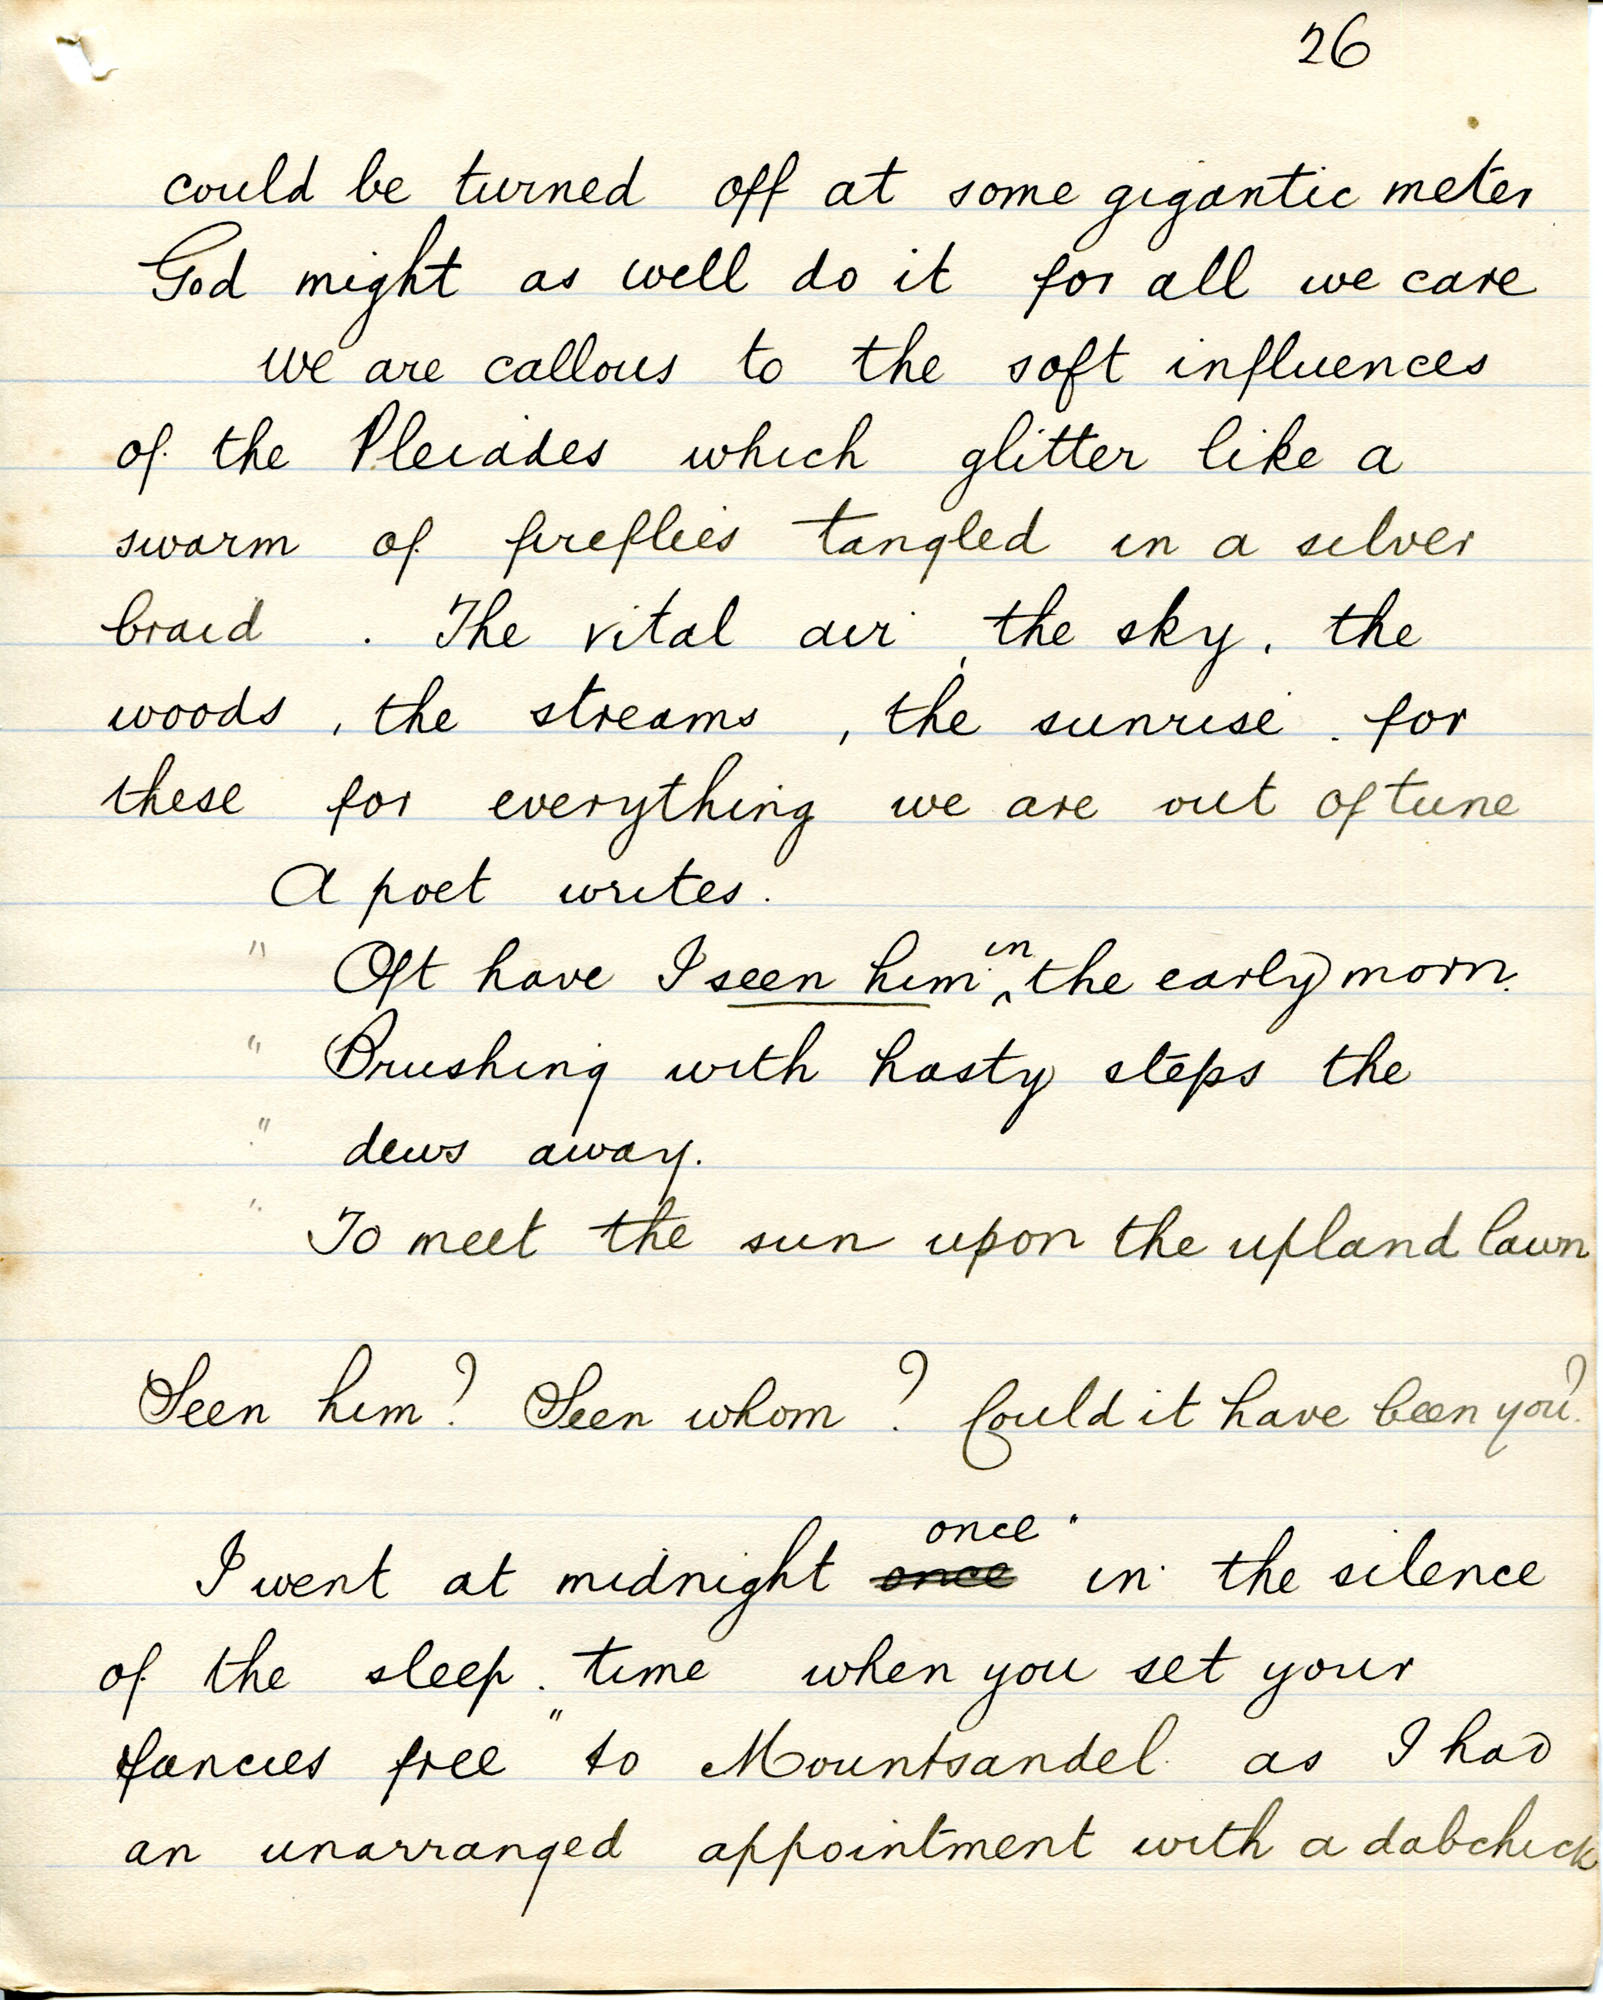 26
could be turned off at some gigantic meter
God might as well do it for all we care
we are callous to the soft influences
of the Pleiades which glitter like a
swarm of fireflies tangled in a silver
braid . The vital air , the sky , the
woods , the streams , the sunrise . for
these for everything we are out of tune
A poet writes .
" Oft have I seen him in the early morn.
" Brushing with hasty steps the
" dews away.
" To meet the sun upon the upland lawn
Seen him? Seen whom ? Could it have been you?
once "
I went at midnight once in the silence
of the sleep . time when you set your
fancies free " to Mountsandel as I had
an unarranged appointment with a dabchick